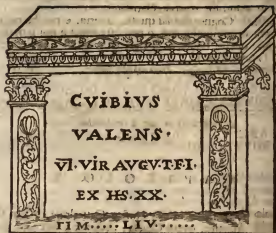 CVIBIVS
VALENS·
VI·VIR AVGV·T·FI·
EX HS·XX·
TI M.....LIV......